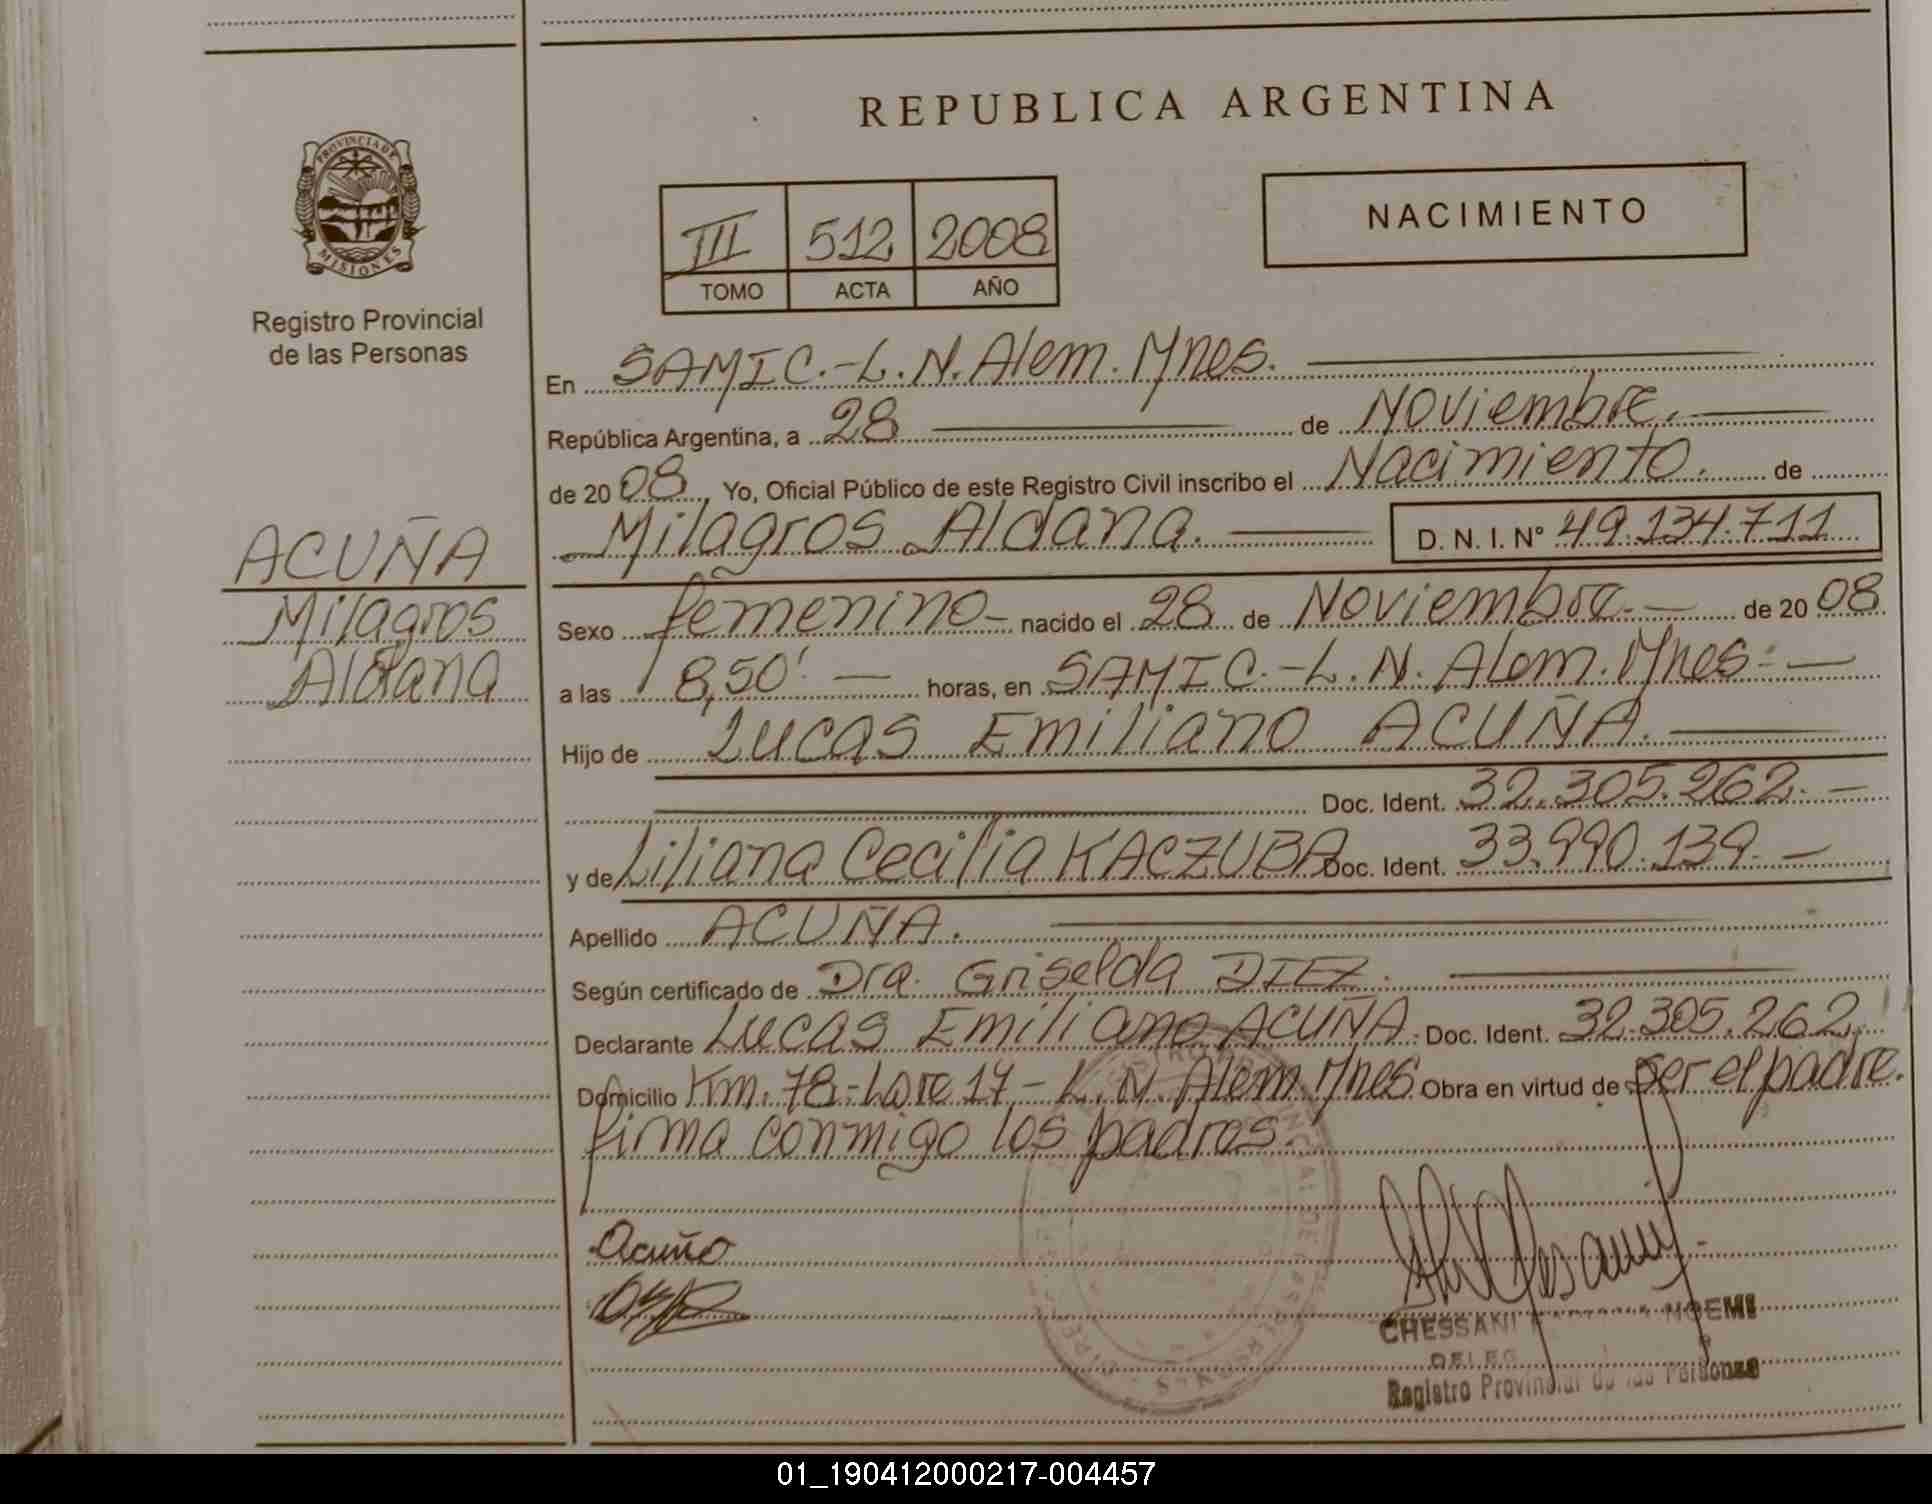 REPUBLICA ARGENTINA
PROVINCIA DE
MISIONES
Registro Provincial
de las Personas
III 512 2008
TOMO ACTA AÑO
NACIMIENTO
En SAMIC.-L.N.Alem.Mnes.
República Argentina, a 28 de Noviembre.
de 20 08, Yo, Oficial Público de este Registro Civil inscribo el Nacimiento. de
Milagros Aldana. D. N. I. N° 49.134.711
ACUÑA
Milagros
Aldana
Sexo femenino- nacido el 28 de Noviembre.- de 20 08
a las 8,50' horas, en SAMIC.-L.N. Alem. Mnes.-
Hijo de Lucas Emiliano ACUÑA.
Doc. Ident. 32.305.262.-
y de Liliana Cecilia KACZUBA Doc. Ident. 33.990.139.-
Apellido ACUÑA.
Según certificado de Dra. Griselda DIEZ.
Declarante Lucas Emiliano ACUÑA. Doc. Ident. 32.305.262.
Domicilio Km. 78-Lote 17- L.N. Alem.Mnes. Obra en virtud de ser el padre.
firma conmigo los padres.
Acuña
CHESSANI NOEMI
DELEG
Registro Provincial de las Personas
01_190412000217-004457